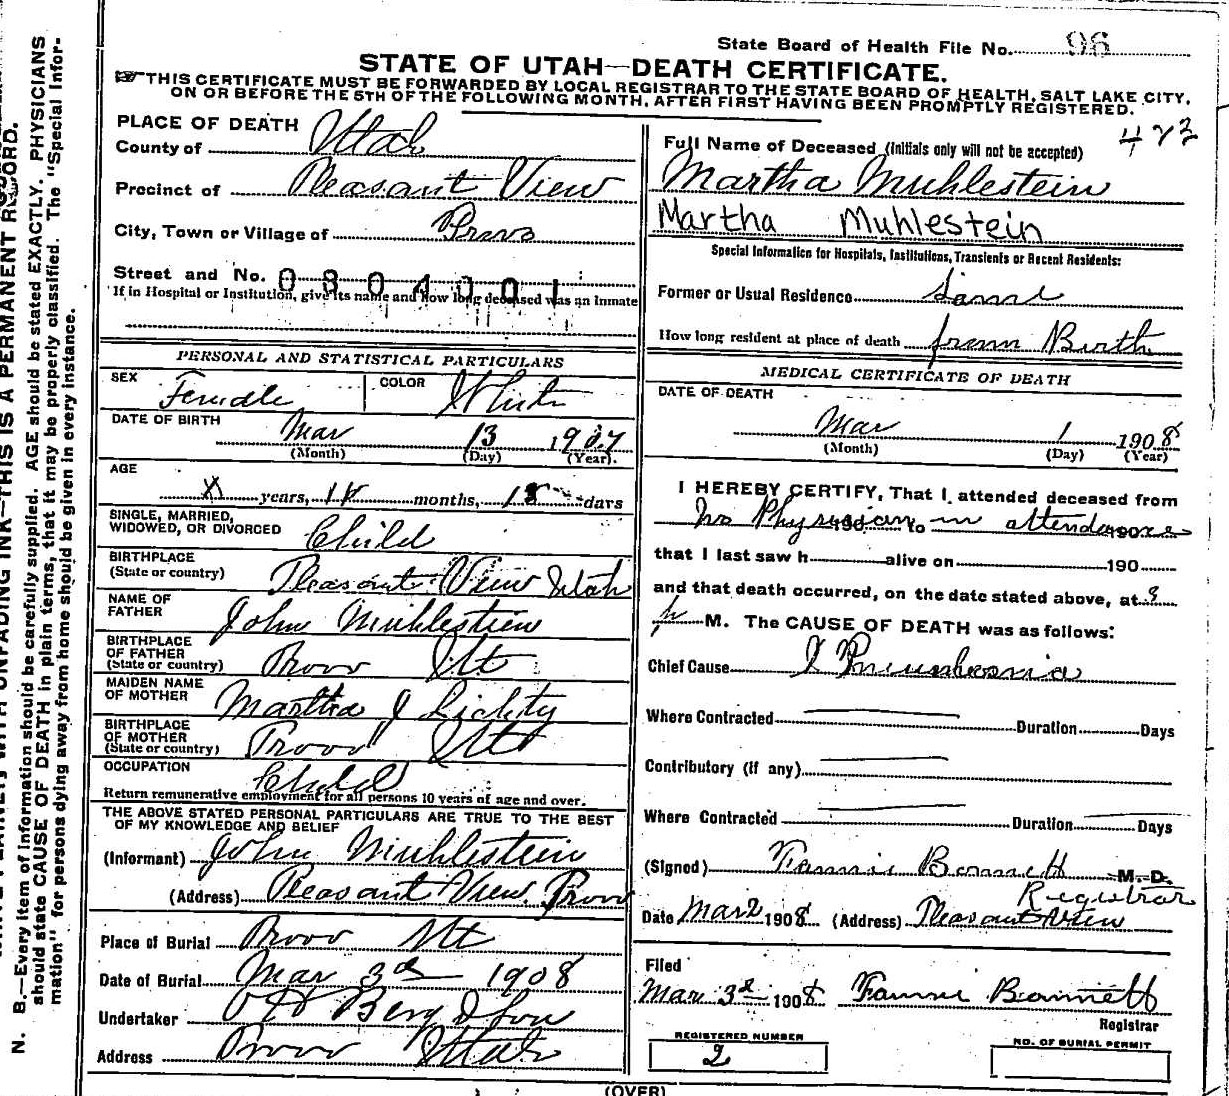 State Board of Health File No. 96
STATE OF UTAH—DEATH CERTIFICATE.
THIS CERTIFICATE MUST BE FORWARDED BY LOCAL REGISTRAR TO THE STATE BOARD OF HEALTH, SALT LAKE CITY,
ON OR BEFORE THE 5TH OF THE FOLLOWING MONTH, AFTER FIRST HAVING BEEN PROMPTLY REGISTERED.
PLACE OF DEATH
County of Utah
Precinct of Pleasant View
City, Town or Village of Provo
Street and No. 0804001
If in Hospital or Institution, give its name and how long deceased was an inmate
PERSONAL AND STATISTICAL PARTICULARS
SEX Female COLOR White
DATE OF BIRTH Mar 13 1907
(Month) (Day) (Year).
AGE
X years, 11 months, 18 days
SINGLE, MARRIED,
WIDOWED, OR DIVORCED Child
BIRTHPLACE
(State or country) Pleasant View Utah
NAME OF
FATHER John Muhlestein
BIRTHPLACE
OF FATHER
(State or country) Provo Ut
MAIDEN NAME
OF MOTHER Martha J Lichty
BIRTHPLACE
OF MOTHER
(State or country) Provo Ut
OCCUPATION Child
Return remunerative employment for all persons 10 years of age and over.
THE ABOVE STATED PERSONAL PARTICULARS ARE TRUE TO THE BEST
OF MY KNOWLEDGE AND BELIEF
(Informant) John Muhlestein
(Address) Pleasant View. Provo
Place of Burial Provo Ut
Date of Burial Mar 3d 1908
Undertaker Berg & Son
Address Provo Utah
423
Full Name of Deceased (Initials only will not be accepted)
Martha Muhlestein
Martha Muhlestein
Special Information for Hospitals, Institutions, Transients or Recent Residents:
Former or Usual Residence Same
How long resident at place of death from Birth
MEDICAL CERTIFICATE OF DEATH
DATE OF DEATH
Mar 1 1908
(Month) (Day) (Year)
I HEREBY CERTIFY, That I attended deceased from
No Physician in attendance 190 to 190
that I last saw h alive on 190
and that death occurred, on the date stated above, at 9
p M. The CAUSE OF DEATH was as follows:
Chief Cause Pneumonia
Where Contracted Duration Days
Contributory (if any)
Where Contracted Duration Days
(Signed) Fannie Bonnett M. D.
Registrar
Date Mar 2 1908 (Address) Pleasant View
Filed
Mar 3d 1908 Fannie Bonnett
Registrar
REGISTERED NUMBER
2
NO. OF BURIAL PERMIT
(OVER)
N. B.—Every item of information should be carefully supplied. AGE should be stated EXACTLY. PHYSICIANS
should state CAUSE OF DEATH in plain terms, that it may be properly classified. The "Special Infor-
mation" for persons dying away from home should be given in every instance.